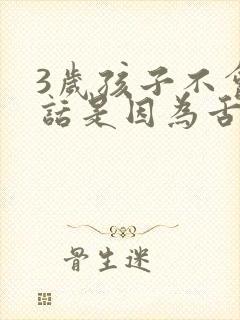 3歲孩子不會
話是因為舌
骨生迷